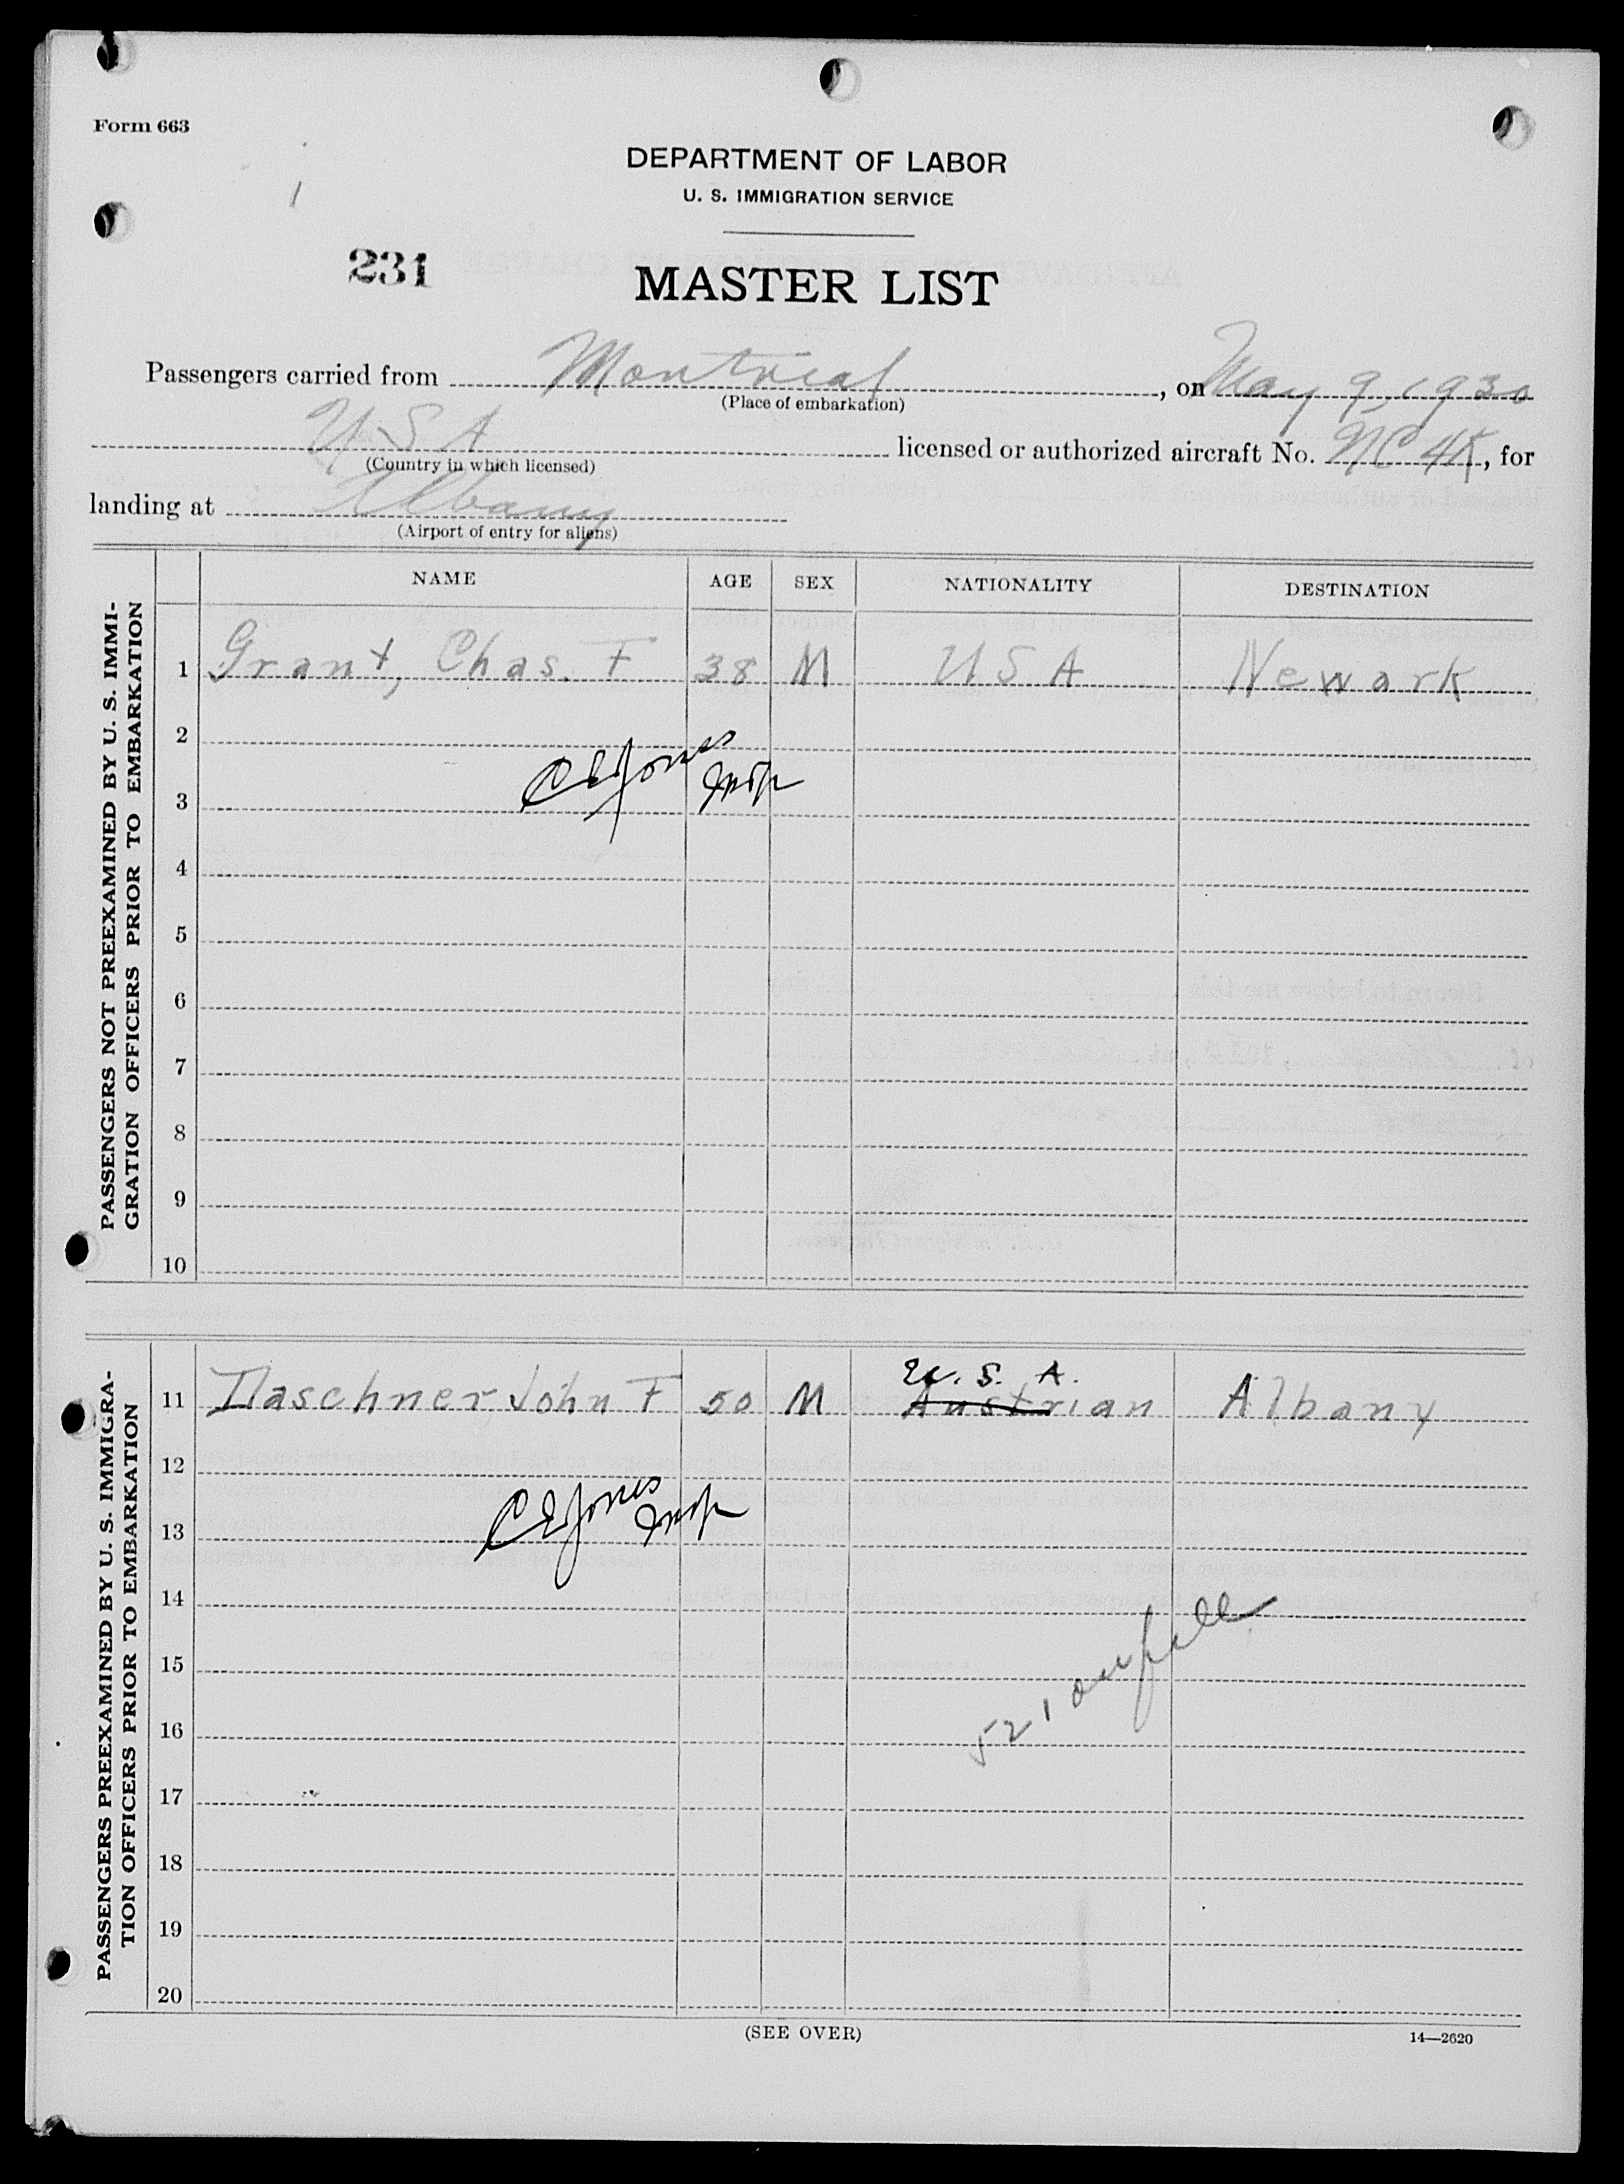 Form 663
1
DEPARTMENT OF LABOR
U. S. IMMIGRATION SERVICE
231
MASTER LIST
Passengers carried from Montreal, on May 9, 1930
(Place of embarkation)
USA licensed or authorized aircraft No. NC 4K, for
(Country in which licensed)
landing at Albany
(Airport of entry for aliens)
NAME AGE SEX NATIONALITY DESTINATION
PASSENGERS NOT PREEXAMINED BY U. S. IMMI-
GRATION OFFICERS PRIOR TO EMBARKATION
1 Grant, Chas. F 38 M USA Newark
2
C E Jones
Insp
3
4
5
6
7
8
9
10
PASSENGERS PREEXAMINED BY U. S. IMMIGRA-
TION OFFICERS PRIOR TO EMBARKATION
U. S. A.
11 Daschner John F 50 M Austrian Albany
12
C E Jones
Insp
13
14
15
521
16
17
18
19
20
(SEE OVER)
14—2620